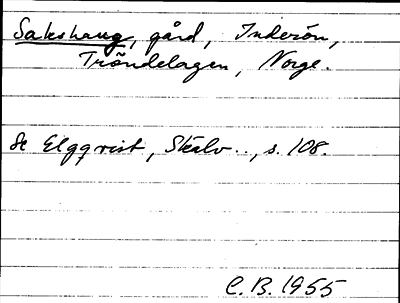 Sakshaug, gård, Inderön,
Tröndelagen, Norge.
Se Elgqvist, Skälv.., s. 108.
C.B. 1955